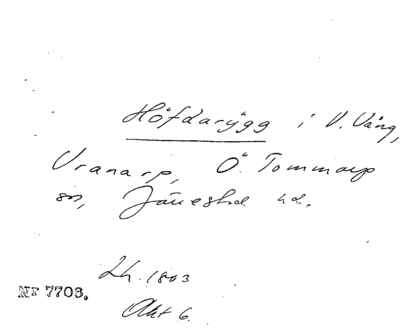 Höfdarÿgg i V. Vång,
Vranarp, Ö. Tommarp
sn, Järrestad hd.
Lh. 1803
Nr 7703.
Akt 6.